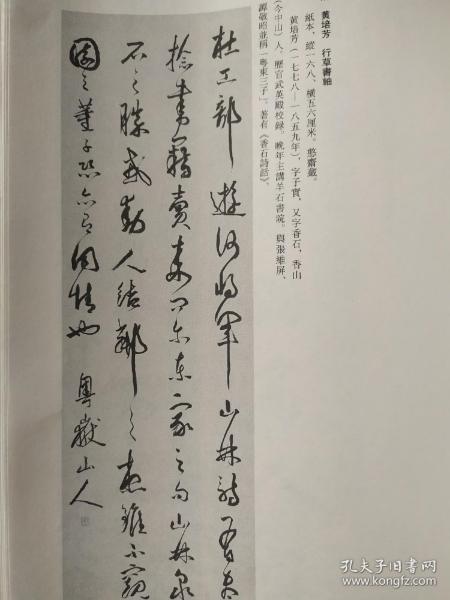 黃培芳　行草書軸
紙本，縱一六八、橫五六厘米。憨齋藏。
黃培芳（一七七八—一八五九年），字子實，又字香石，香山
（今中山）人。歷官武英殿校錄。晚年主講羊石書院。與張維屏、
譚敬昭並稱「粵東三子」。著有《香石詩話》。
杜工部遊何將軍山林詩有
捻書籍賣來問尔東家之句山林泉
石之勝感動人結鄰之想雖不窺
園之董子恐亦同情也　粵嶽山人
孔夫子旧书网
www.kongfz.com